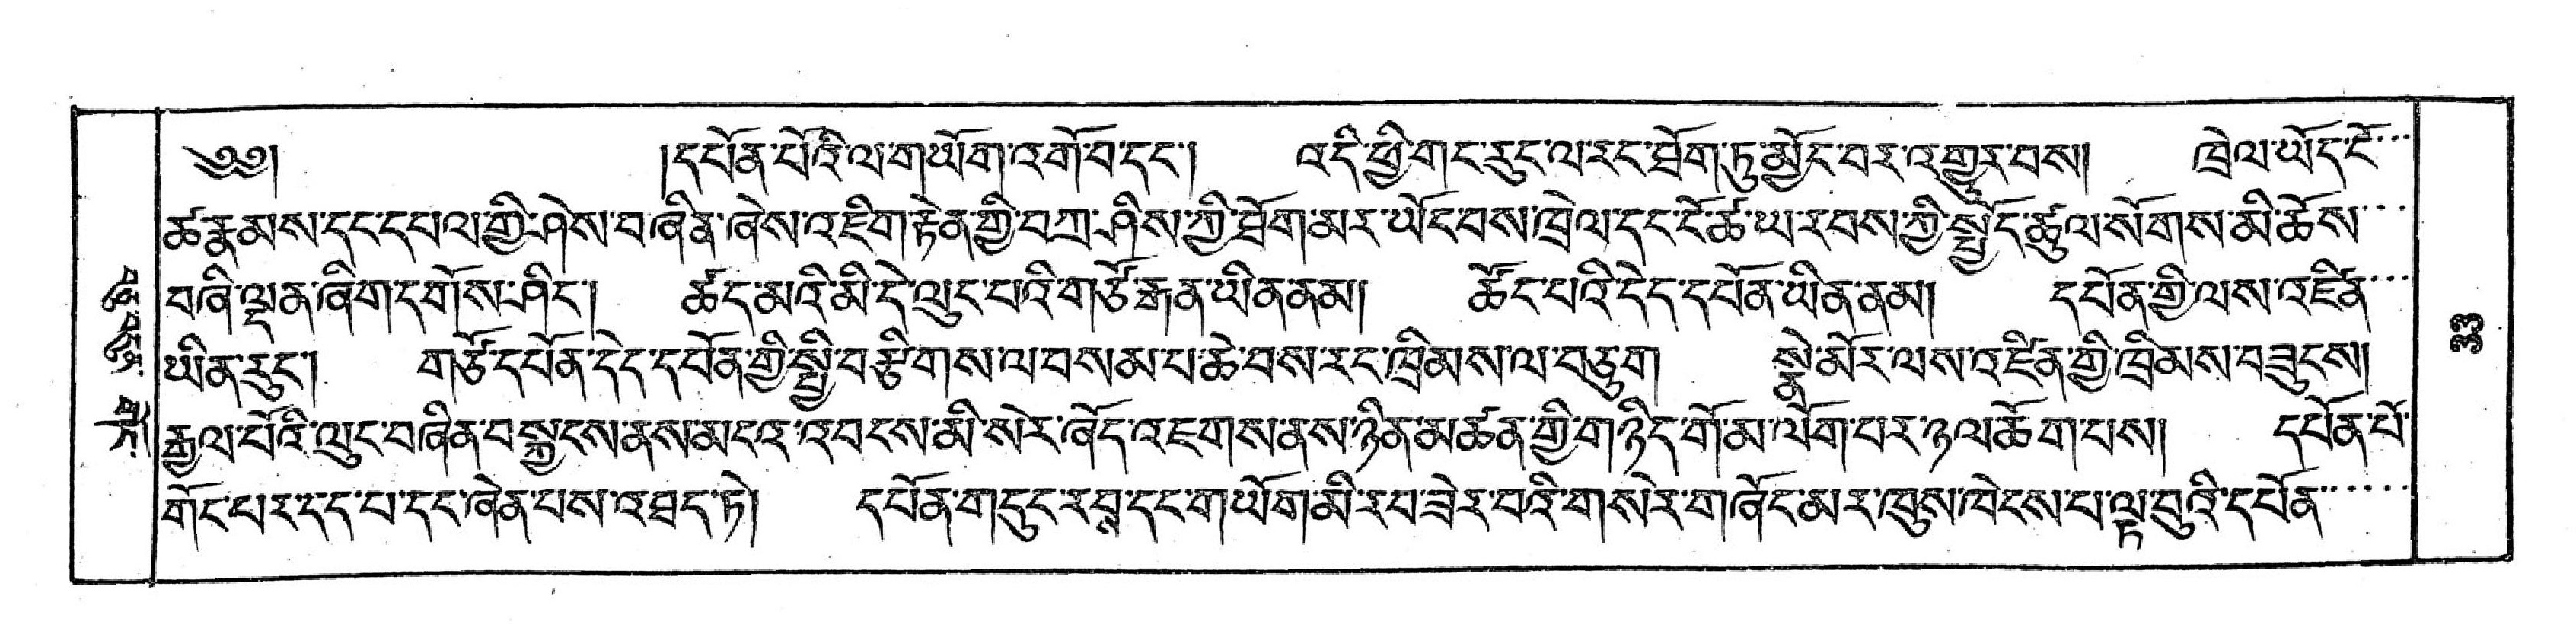 ༄༅། །དཔོན་པོའི་ལ་གཡོག་འགོ་བ་དང་། འདི་ཕྱི་གང་རུང་ལ་རང་ཐོག་ཏུ་མྱོང་བར་འགྱུར་བས། ཁྲེལ་ཡོད་ངོ་
ཚ་རྣམས་དང་དཔལ་གྱི་ཤེས་བ་ཞིན་ཞེས་འཇིག་རྟེན་གྱི་བཀྲ་ཤིས་ཀྱི་ཐོག་མར་ཡོང་བས་ཁྲེལ་དང་ངོ་ཚ་ཡ་རབས་ཀྱི་སྤྱོད་ཚུལ་སོགས་མི་ཆོས་
བཞི་ལྡན་ཞིག་དགོས་ཤིང་། ཚད་མའི་མི་དེ་ལུང་པའི་གཙོ་རྒན་ཡིན་ནམ། ཚོང་པའི་དེད་དཔོན་ཡིན་ནམ། དཔོན་གྱི་ལས་འཛིན་
ཡིན་རུང་། གཙོ་དཔོན་དེད་དཔོན་གྱི་སྤྱི་བརྩིགས་ལ་བསམ་པ་ཆེ་བས་རང་ཁྲིམས་ལ་བཅུག སྣེ་མོར་ལས་འཛིན་གྱི་ཁྲིམས་བཟུངས།
རྒྱལ་པོའི་ལུང་བཞིན་བསྐྱངས་ནས་མངའ་འབངས་མི་སེར་ཞོད་འཇགས་ནས་ཉིན་མཚན་གྱི་གཉིད་གོ་མ་ལོག་པར་ཉལ་ཆོག་པས། དཔོན་པོ་
གོང་པར་དད་པ་དང་ཞེན་པས་འཐད་ཏེ། དཔོན་གདུང་རབྲ་དང་གཡོག་མི་རབ་ཟེར་བའི་གསེར་གཞོང་མར་ཁུས་ཁེངས་པ་ལྟ་བུའི་དཔོན་
༣༣